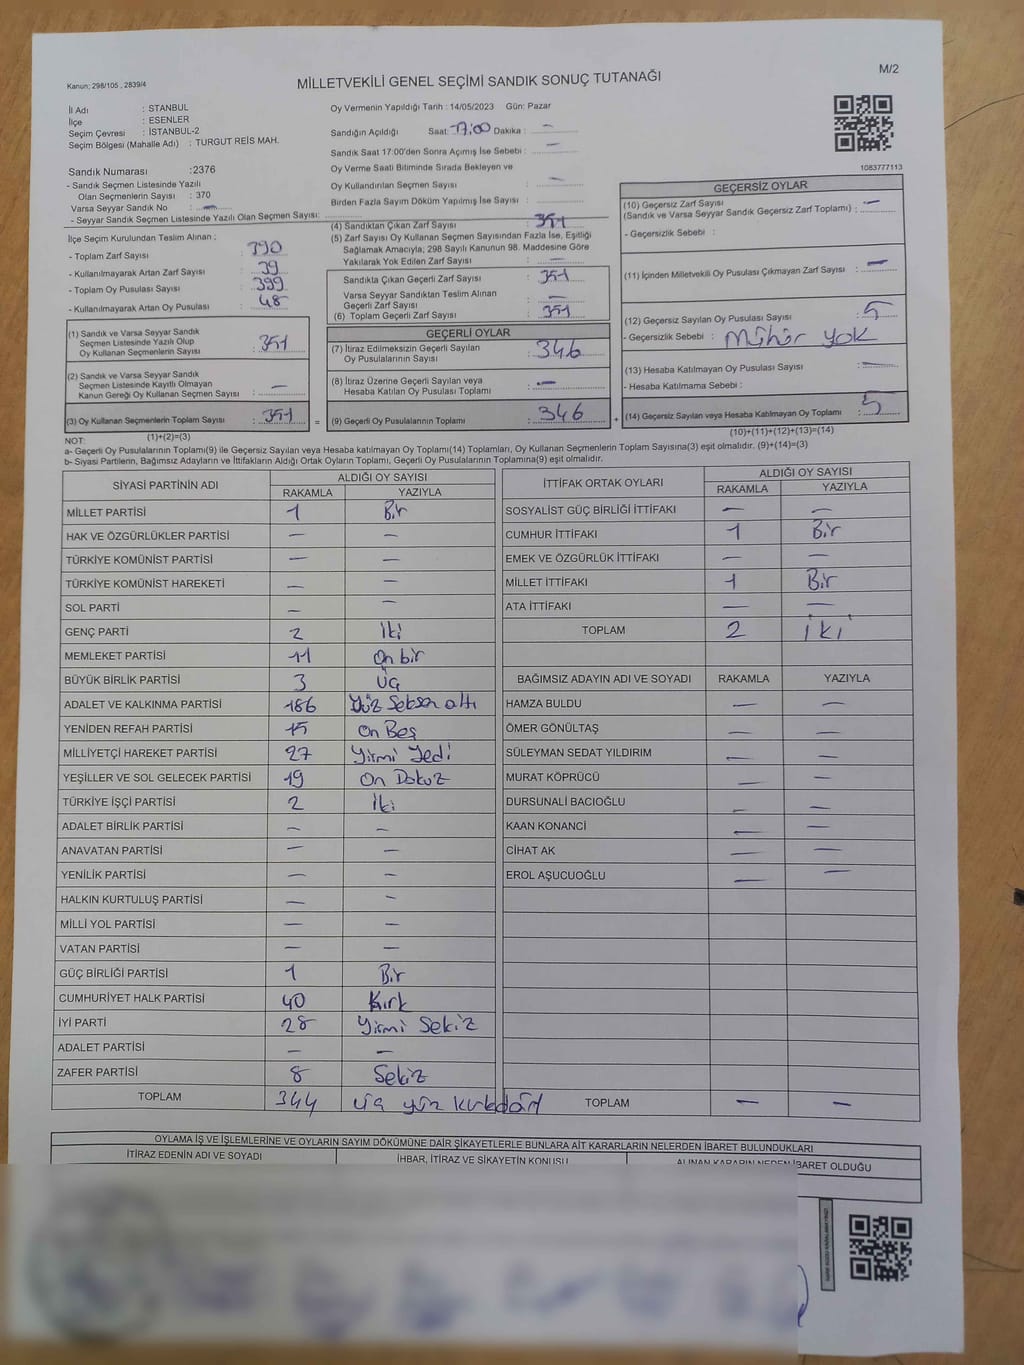 Kanun; 298/105 , 2839/4
MİLLETVEKİLİ GENEL SEÇİMİ SANDIK SONUÇ TUTANAĞI
M/2
İl Adı : STANBUL
İlçe : ESENLER
Seçim Çevresi : İSTANBUL-2
Seçim Bölgesi (Mahalle Adı) : TURGUT REİS MAH.
Oy Vermenin Yapıldığı Tarih : 14/05/2023 Gün: Pazar
Sandığın Açıldığı Saat: 17:00 Dakika : —
Sandık Saat 17:00'den Sonra Açımış İse Sebebi : —
Oy Verme Saati Bitiminde Sırada Bekleyen ve
Oy Kullandırılan Seçmen Sayısı : —
Birden Fazla Sayım Döküm Yapılmış İse Sayısı :
1083777113
Sandık Numarası :2376
- Sandık Seçmen Listesinde Yazılı
Olan Seçmenlerin Sayısı : 370
Varsa Seyyar Sandık No : —
- Seyyar Sandık Seçmen Listesinde Yazılı Olan Seçmen Sayısı:
İlçe Seçim Kurulundan Teslim Alınan ;
- Toplam Zarf Sayısı : 390
- Kullanılmayarak Artan Zarf Sayısı : 39
- Toplam Oy Pusulası Sayısı : 399
- Kullanılmayarak Artan Oy Pusulası : 48
(1) Sandık ve Varsa Seyyar Sandık
Seçmen Listesinde Yazılı Olup
Oy Kullanan Seçmenlerin Sayısı : 351
(2) Sandık ve Varsa Seyyar Sandık
Seçmen Listesinde Kayıtlı Olmayan
Kanun Gereği Oy Kullanan Seçmen Sayısı : —
(3) Oy Kullanan Seçmenlerin Toplam Sayısı : 351
(1)+(2)=(3)
(4) Sandıktan Çıkan Zarf Sayısı : 351
(5) Zarf Sayısı Oy Kullanan Seçmen Sayısından Fazla İse, Eşitliği
Sağlamak Amacıyla; 298 Sayılı Kanunun 98. Maddesine Göre
Yakılarak Yok Edilen Zarf Sayısı : —
Sandıkta Çıkan Geçerli Zarf Sayısı : 351
Varsa Seyyar Sandıktan Teslim Alınan
Geçerli Zarf Sayısı : —
(6) Toplam Geçerli Zarf Sayısı : 351
GEÇERLİ OYLAR
(7) İtiraz Edilmeksizin Geçerli Sayılan
Oy Pusulalarının Sayısı : 346
(8) İtiraz Üzerine Geçerli Sayılan veya
Hesaba Katılan Oy Pusulaları Toplamı : —
= (9) Geçerli Oy Pusulalarının Toplamı : 346
GEÇERSİZ OYLAR
(10) Geçersiz Zarf Sayısı
(Sandık ve Varsa Seyyar Sandık Geçersiz Zarf Toplamı) : —
- Geçersizlik Sebebi :
(11) İçinden Milletvekili Oy Pusulası Çıkmayan Zarf Sayısı : —
(12) Geçersiz Sayılan Oy Pusulası Sayısı : 5
- Geçersizlik Sebebi : Mühür yok
(13) Hesaba Katılmayan Oy Pusulası Sayısı : —
- Hesaba Katılmama Sebebi :
+ (14) Geçersiz Sayılan veya Hesaba Katılmayan Oy Toplamı : 5
(10)+(11)+(12)+(13)=(14)
NOT:
a- Geçerli Oy Pusulalarının Toplamı(9) ile Geçersiz Sayılan veya Hesaba katılmayan Oy Toplamı(14) Toplamları, Oy Kullanan Seçmenlerin Toplam Sayısına(3) eşit olmalıdır. (9)+(14)=(3)
b- Siyasi Partilerin, Bağımsız Adayların ve İttifakların Aldığı Ortak Oyların Toplamı, Geçerli Oy Pusulalarının Toplamına(9) eşit olmalıdır.
SİYASİ PARTİNİN ADI ALDIĞI OY SAYISI
RAKAMLA YAZIYLA
MİLLET PARTİSİ 1 Bir
HAK VE ÖZGÜRLÜKLER PARTİSİ — —
TÜRKİYE KOMÜNİST PARTİSİ — —
TÜRKİYE KOMÜNİST HAREKETİ — —
SOL PARTİ — —
GENÇ PARTİ 2 İki
MEMLEKET PARTİSİ 11 On bir
BÜYÜK BİRLİK PARTİSİ 3 Üç
ADALET VE KALKINMA PARTİSİ 186 Yüz Seksen altı
YENİDEN REFAH PARTİSİ 15 On Beş
MİLLİYETÇİ HAREKET PARTİSİ 27 Yirmi Yedi
YEŞİLLER VE SOL GELECEK PARTİSİ 19 On Dokuz
TÜRKİYE İŞÇİ PARTİSİ 2 İki
ADALET BİRLİK PARTİSİ — —
ANAVATAN PARTİSİ — —
YENİLİK PARTİSİ — —
HALKIN KURTULUŞ PARTİSİ — —
MİLLİ YOL PARTİSİ — —
VATAN PARTİSİ — —
GÜÇ BİRLİĞİ PARTİSİ 1 Bir
CUMHURİYET HALK PARTİSİ 40 Kırk
İYİ PARTİ 28 Yirmi Sekiz
ADALET PARTİSİ — —
ZAFER PARTİSİ 8 Sekiz
TOPLAM 344 üç yüz kırkdört
İTTİFAK ORTAK OYLARI ALDIĞI OY SAYISI
RAKAMLA YAZIYLA
SOSYALİST GÜÇ BİRLİĞİ İTTİFAKI — —
CUMHUR İTTİFAKI 1 Bir
EMEK VE ÖZGÜRLÜK İTTİFAKI — —
MİLLET İTTİFAKI 1 Bir
ATA İTTİFAKI — —
TOPLAM 2 İki
BAĞIMSIZ ADAYIN ADI VE SOYADI RAKAMLA YAZIYLA
HAMZA BULDU — —
ÖMER GÖNÜLTAŞ — —
SÜLEYMAN SEDAT YILDIRIM — —
MURAT KÖPRÜCÜ — —
DURSUNALİ BACIOĞLU — —
KAAN KONANCİ — —
CİHAT AK — —
EROL AŞUCUOĞLU — —
TOPLAM — —
OYLAMA İŞ VE İŞLEMLERİNE VE OYLARIN SAYIM DÖKÜMÜNE DAİR ŞİKAYETLERLE BUNLARA AİT KARARLARIN NELERDEN İBARET BULUNDUKLARI
İTİRAZ EDENİN ADI VE SOYADI İHBAR, İTİRAZ VE ŞİKAYETİN KONUSU ALINAN KARARIN NEDEN İBARET OLDUĞU